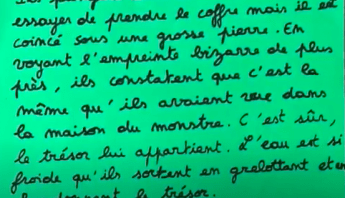 essayer de prendre le coffre mais il est
coincé sous une grosse pierre. En
voyant l'empreinte bizarre de plus
près, ils constatent que c'est la
même qu'ils avaient vue dans
la maison du monstre. C'est sûr,
le trésor lui appartient. L'eau est si
froide qu'ils sortent en grelottant et en
le trésor.